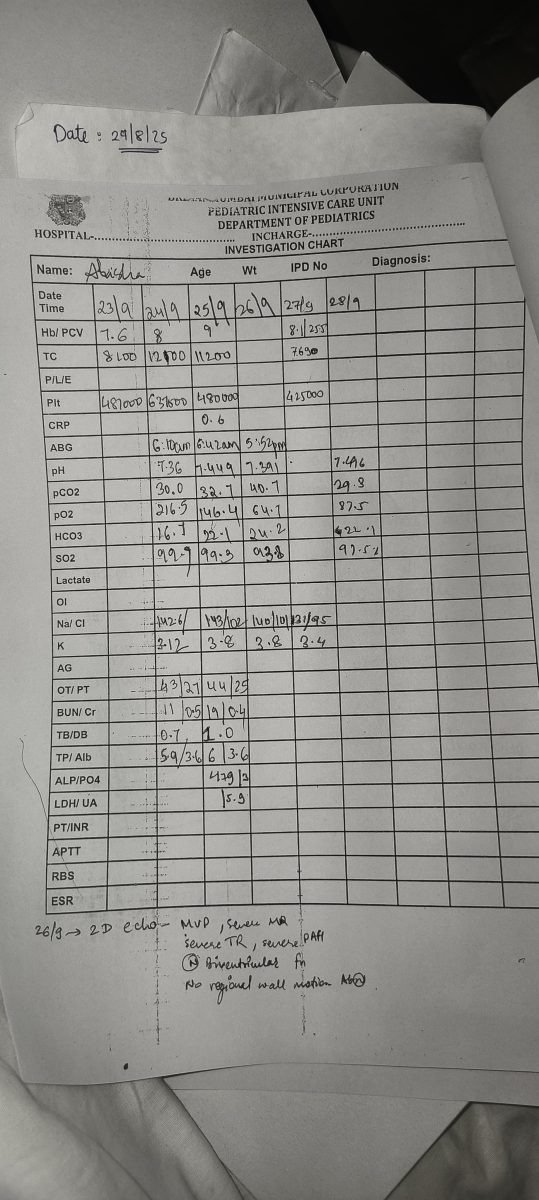 Date : 29/8/25
MUNICIPAL CORPORATION
PEDIATRIC INTENSIVE CARE UNIT
DEPARTMENT OF PEDIATRICS
HOSPITAL-........................ INCHARGE-........................
INVESTIGATION CHART
Name: Age Wt IPD No Diagnosis:
Date Time 23/9 24/9 25/9 26/9 27/9 28/9
Hb/ PCV 7.6 8 9 8.1/255
TC 8100 12100 11200 7690
P/L/E
Plt 487000 480000 425000
CRP 0.6
ABG 6:10am 6:42am 5:52pm
pH 7.36 7.449 7.391 7.496
pCO2 30.0 32.7 40.7 29.8
pO2 216.5 146.4 64.7 87.5
HCO3 16.7 22.1 24.2 22.1
SO2 99.9 99.3 93.8 97.5%
Lactate
OI
Na/ Cl 142.6/ 143/102 140/101 131/95
K 3.12 3.8 3.8 3.4
AG
OT/ PT 43/27 44/25
BUN/ Cr 11/0.5 19/0.4
TB/DB 0.7 1.0
TP/ Alb 5.9/3.6 6/3.6
ALP/PO4 479/3
LDH/ UA /5.9
PT/INR
APTT
RBS
ESR
26/9 → 2D echo - MVP, severe MR
severe TR, severe PAH
Ⓝ Biventricular fn
No regional wall motion AbⓃ.